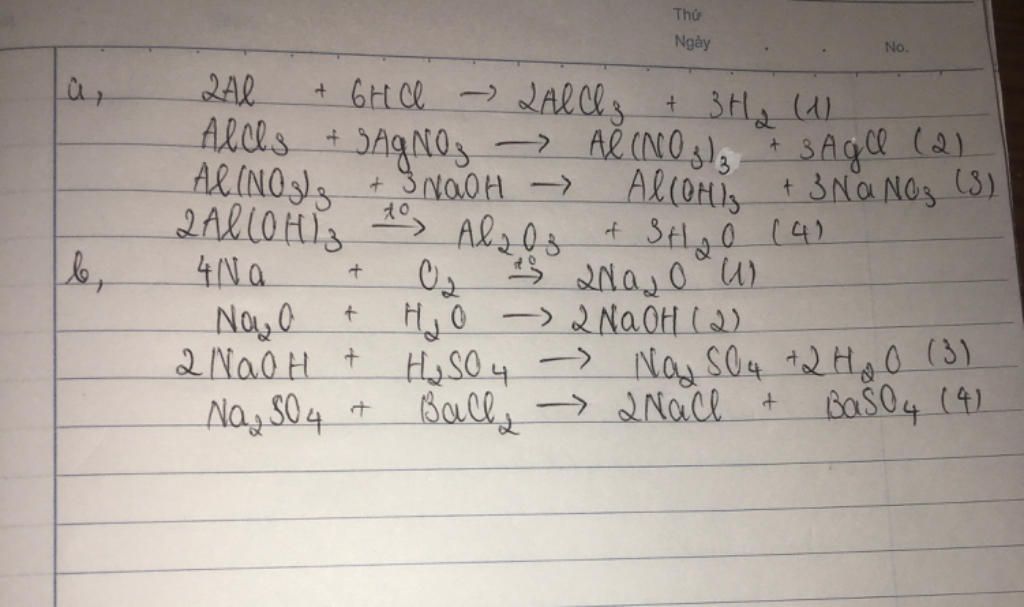 Thứ
Ngày . . No.
a, 2Al + 6HCl → 2AlCl₃ + 3H₂ (1)
AlCl₃ + 3AgNO₃ → Al(NO₃)₃ + 3AgCl (2)
Al(NO₃)₃ + 3NaOH → Al(OH)₃ + 3NaNO₃ (3)
2Al(OH)₃ —t°→ Al₂O₃ + 3H₂O (4)
b, 4Na + O₂ —t°→ 2Na₂O (1)
Na₂O + H₂O → 2NaOH (2)
2NaOH + H₂SO₄ → Na₂SO₄ + 2H₂O (3)
Na₂SO₄ + BaCl₂ → 2NaCl + BaSO₄ (4)